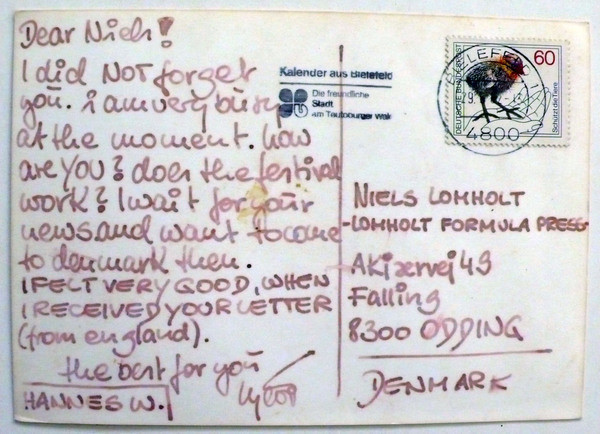 Dear Niels!
I did NOT forget
you. i am very busy
at the moment. how
are YOU? does the festival
work? I wait for your
news and want to come
to denmark then.
I FELT VERY GOOD, WHEN
I RECEIVED YOUR LETTER
(from england).
the best for you
HANNES W.
Kalender aus Bielefeld
Die freundliche
Stadt
am Teutoburger Wald
BIELEFELD
4800
60
DEUTSCHE BUNDESPOST
Schützt die Tiere
NIELS LOMHOLT
-LOMHOLT FORMULA PRESS-
AKizervej 49
Falling
8300 ODDING
DENMARK